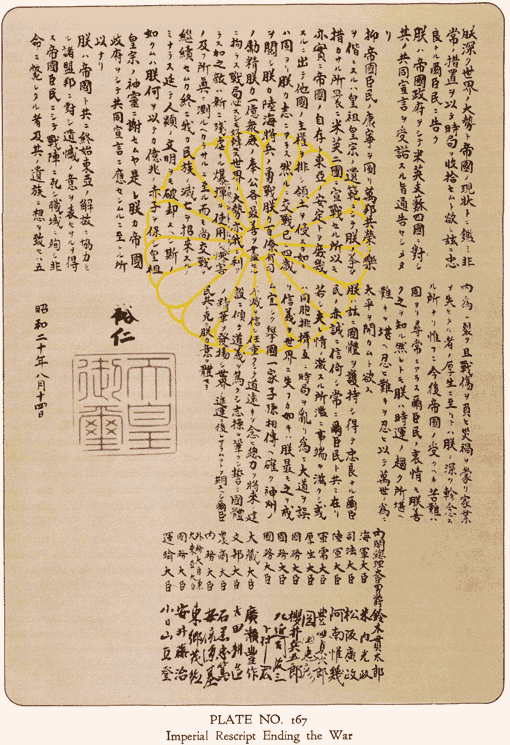 朕深ク世界ノ大勢ト帝國ノ現狀トニ鑑ミ非
常ノ措置ヲ以テ時局ヲ收拾セムト欲シ茲ニ忠
良ナル爾臣民ニ告ク
朕ハ帝國政府ヲシテ米英支蘇四國ニ對シ
其ノ共同宣言ヲ受諾スル旨通告セシメタ
リ
抑帝國臣民ノ康寧ヲ圖リ萬邦共榮ノ樂
ヲ偕ニスルハ皇祖皇宗ノ遺範ニシテ朕ノ拳々
措カサル所曩ニ米英二國ニ宣戰セル所以モ
亦實ニ帝國ノ自存ト東亞ノ安定トヲ庶幾
スルニ出テ他國ノ主權ヲ排シ領土ヲ侵スカ如キ
ハ固ヨリ朕カ志ニアラス然ルニ交戰已ニ四歲
ヲ閱シ朕カ陸海將兵ノ勇戰朕カ百僚有司
ノ勵精朕カ一億衆庶ノ奉公各最善ヲ盡セルニ
拘ラス戰局必スシモ好轉セス世界ノ大勢亦我ニ利
アラス加之敵ハ新ニ殘虐ナル爆彈ヲ使用シテ慘害
ノ及フ所眞ニ測ルヘカラサルニ至ル而モ尚交戰ヲ
繼續セムカ終ニ我カ民族ノ滅亡ヲ招來スル
ノミナラス延テ人類ノ文明ヲモ破却スヘシ斯ノ
如クムハ朕何ヲ以テカ億兆ノ赤子ヲ保シ皇祖
皇宗ノ神靈ニ謝セムヤ是レ朕カ帝國
政府ヲシテ共同宣言ニ應セシムルニ至レル所
以ナリ
朕ハ帝國ト共ニ終始東亞ノ解放ニ協力セ
ル諸盟邦ニ對シ遺憾ノ意ヲ表セサルヲ得
ス帝國臣民ニシテ戰陣ニ死シ職域ニ殉シ非
命ニ斃レタル者及其ノ遺族ニ想ヲ致セハ五
内爲ニ裂ク且戰傷ヲ負ヒ災禍ヲ蒙リ家業
ヲ失ヒタル者ノ厚生ニ至リテハ朕ノ深ク軫念スル
所ナリ惟フニ今後帝國ノ受クヘキ苦難ハ
固ヨリ尋常ニアラス爾臣民ノ衷情モ朕善
ク之ヲ知ル然レトモ朕ハ時運ノ趨ク所堪ヘ
難キヲ堪ヘ忍ヒ難キヲ忍ヒ以テ萬世ノ爲ニ
太平ヲ開カムト欲ス
朕ハ茲ニ國體ヲ護持シ得テ忠良ナル爾臣
民ノ赤誠ニ信倚シ常ニ爾臣民ト共ニ在リ
若シ夫レ情ノ激スル所濫ニ事端ヲ滋クシ或ハ
同胞排擠互ニ時局ヲ亂リ爲ニ大道ヲ誤リ
信義ヲ世界ニ失フカ如キハ朕最モ之ヲ戒
ム宜シク擧國一家子孫相傳ヘ確ク神州ノ
不滅ヲ信シ任重クシテ道遠キヲ念ヒ總力ヲ將來ノ建
設ニ傾ケ道義ヲ篤クシ志操ヲ鞏クシ誓テ國體
ノ精華ヲ發揚シ世界ノ進運ニ後レサラムコトヲ期スヘシ爾臣
民其レ克ク朕カ意ヲ體セヨ
裕仁
天皇御璽
昭和二十年八月十四日
内閣總理大臣男爵 鈴木貫太郎
海軍大臣 米内光政
司法大臣 松阪廣政
陸軍大臣 阿南惟幾
軍需大臣 豐田貞次郎
厚生大臣 岡田忠彦
國務大臣 櫻井兵五郎
國務大臣 左近司政三
國務大臣 下村宏
大藏大臣 廣瀨豐作
文部大臣 太田耕造
農商大臣 石黑忠篤
内務大臣 安倍源基
外務大臣兼大東亞大臣 東郷茂德
國務大臣 安井藤治
運輸大臣 小日山直登
PLATE NO. 167
Imperial Rescript Ending the War